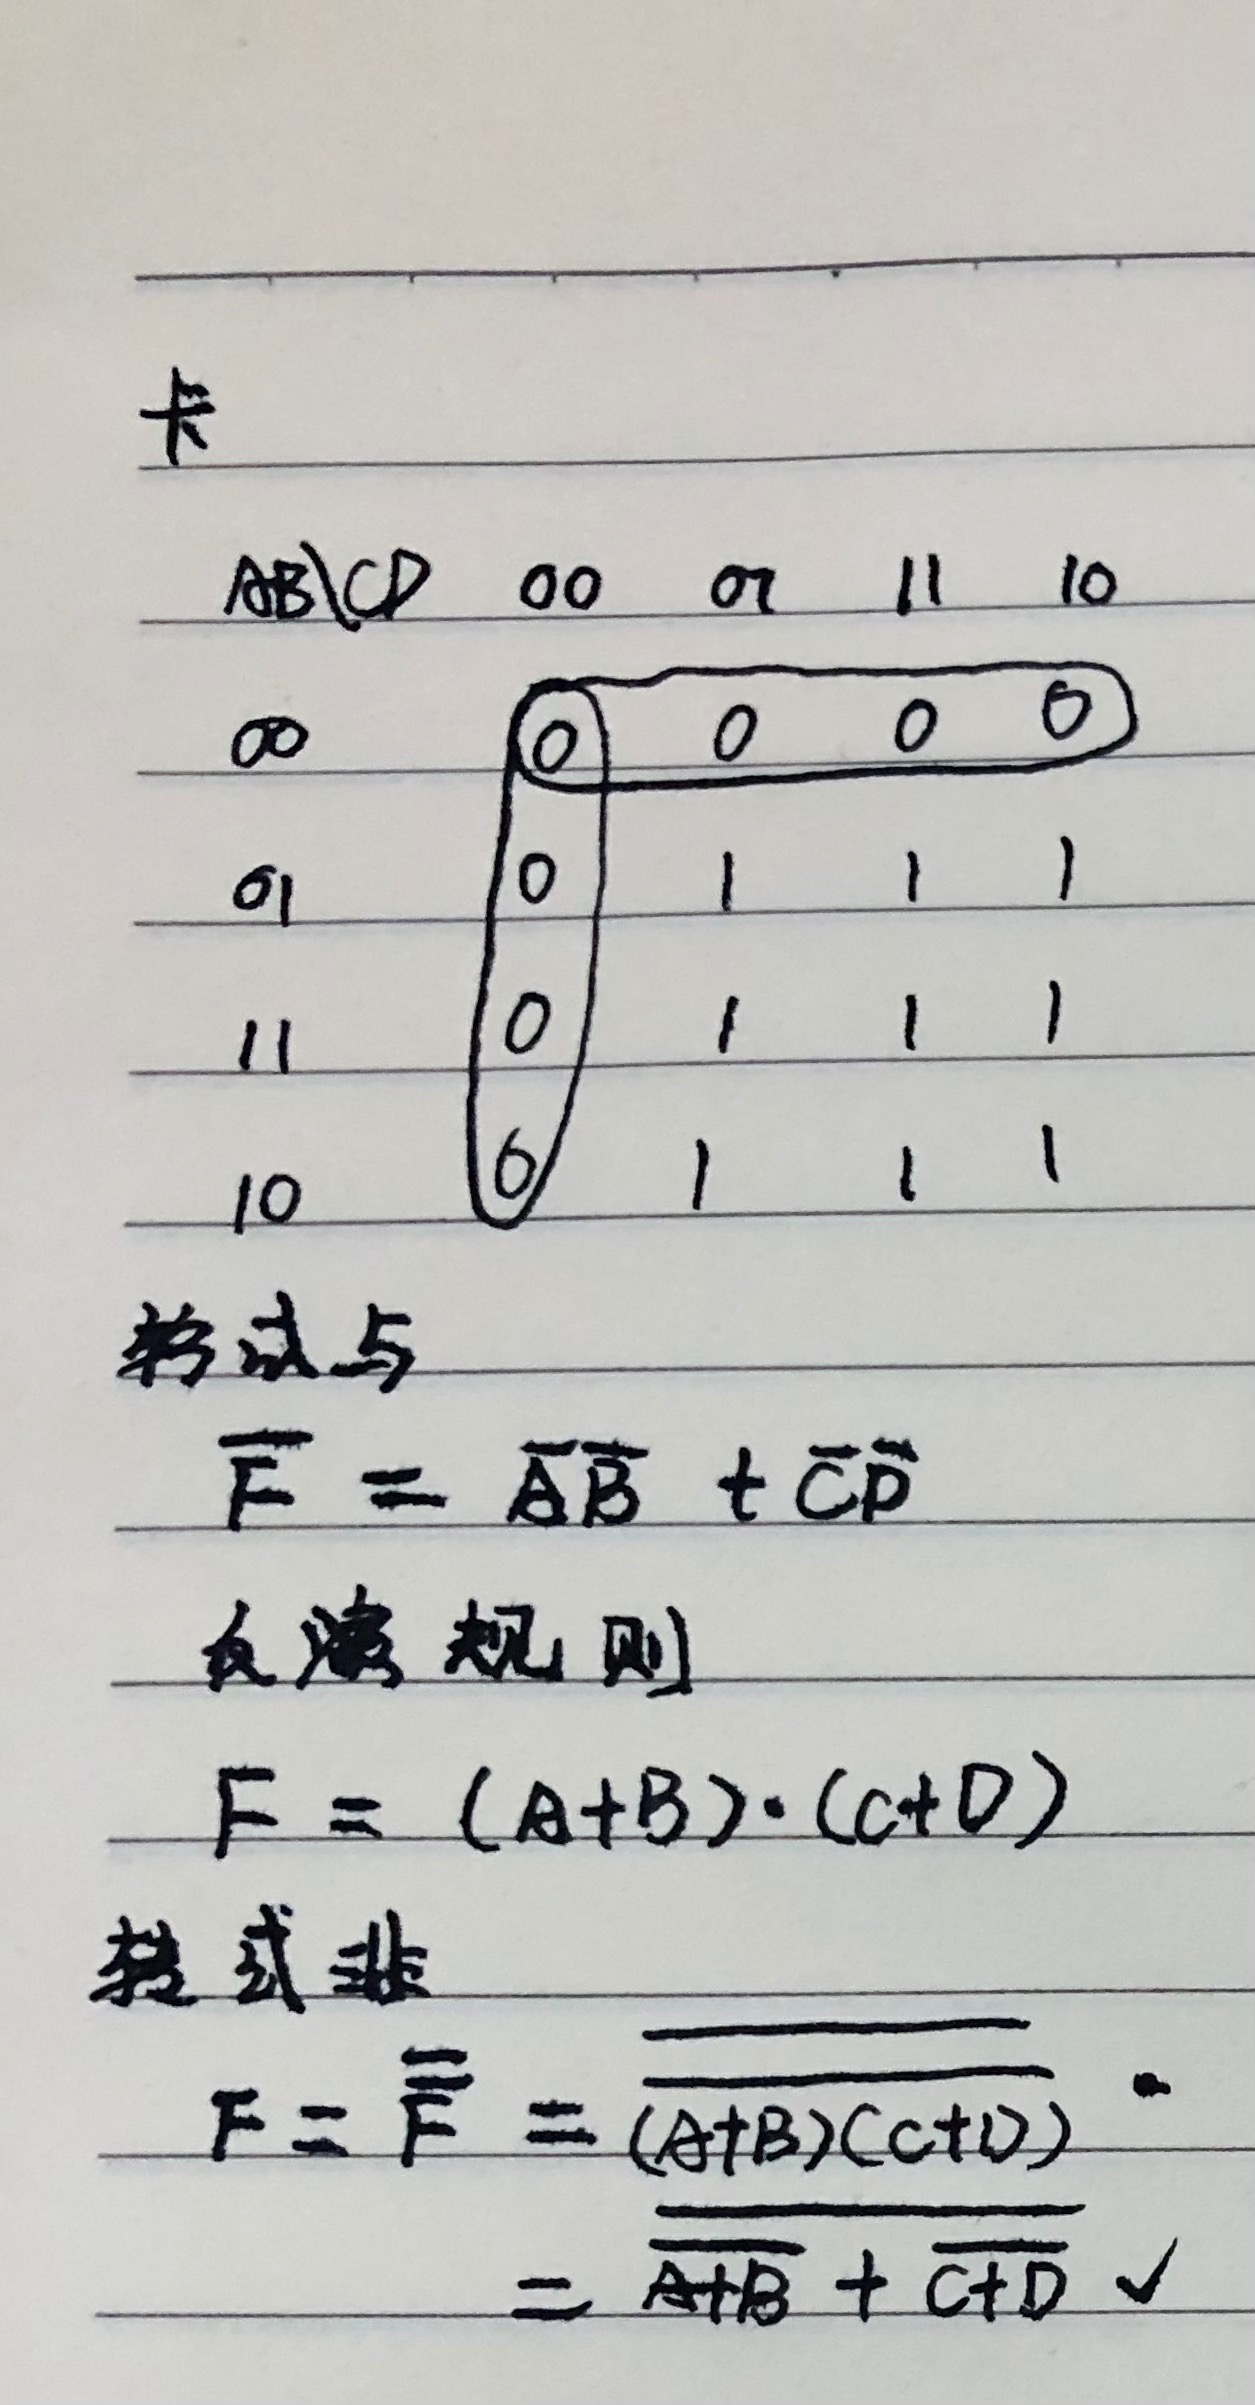 卡
AB\CD 00 01 11 10
00 0 0 0 0
01 0 1 1 1
11 0 1 1 1
10 0 1 1 1
转式与
F̅ = A̅B̅ + C̅D̅
反演规则
F = (A+B)·(C+D)
转式非
F = F̿ = \overline{\overline{(A+B)(C+D)}}
= \overline{\overline{A+B} + \overline{C+D}} ✓